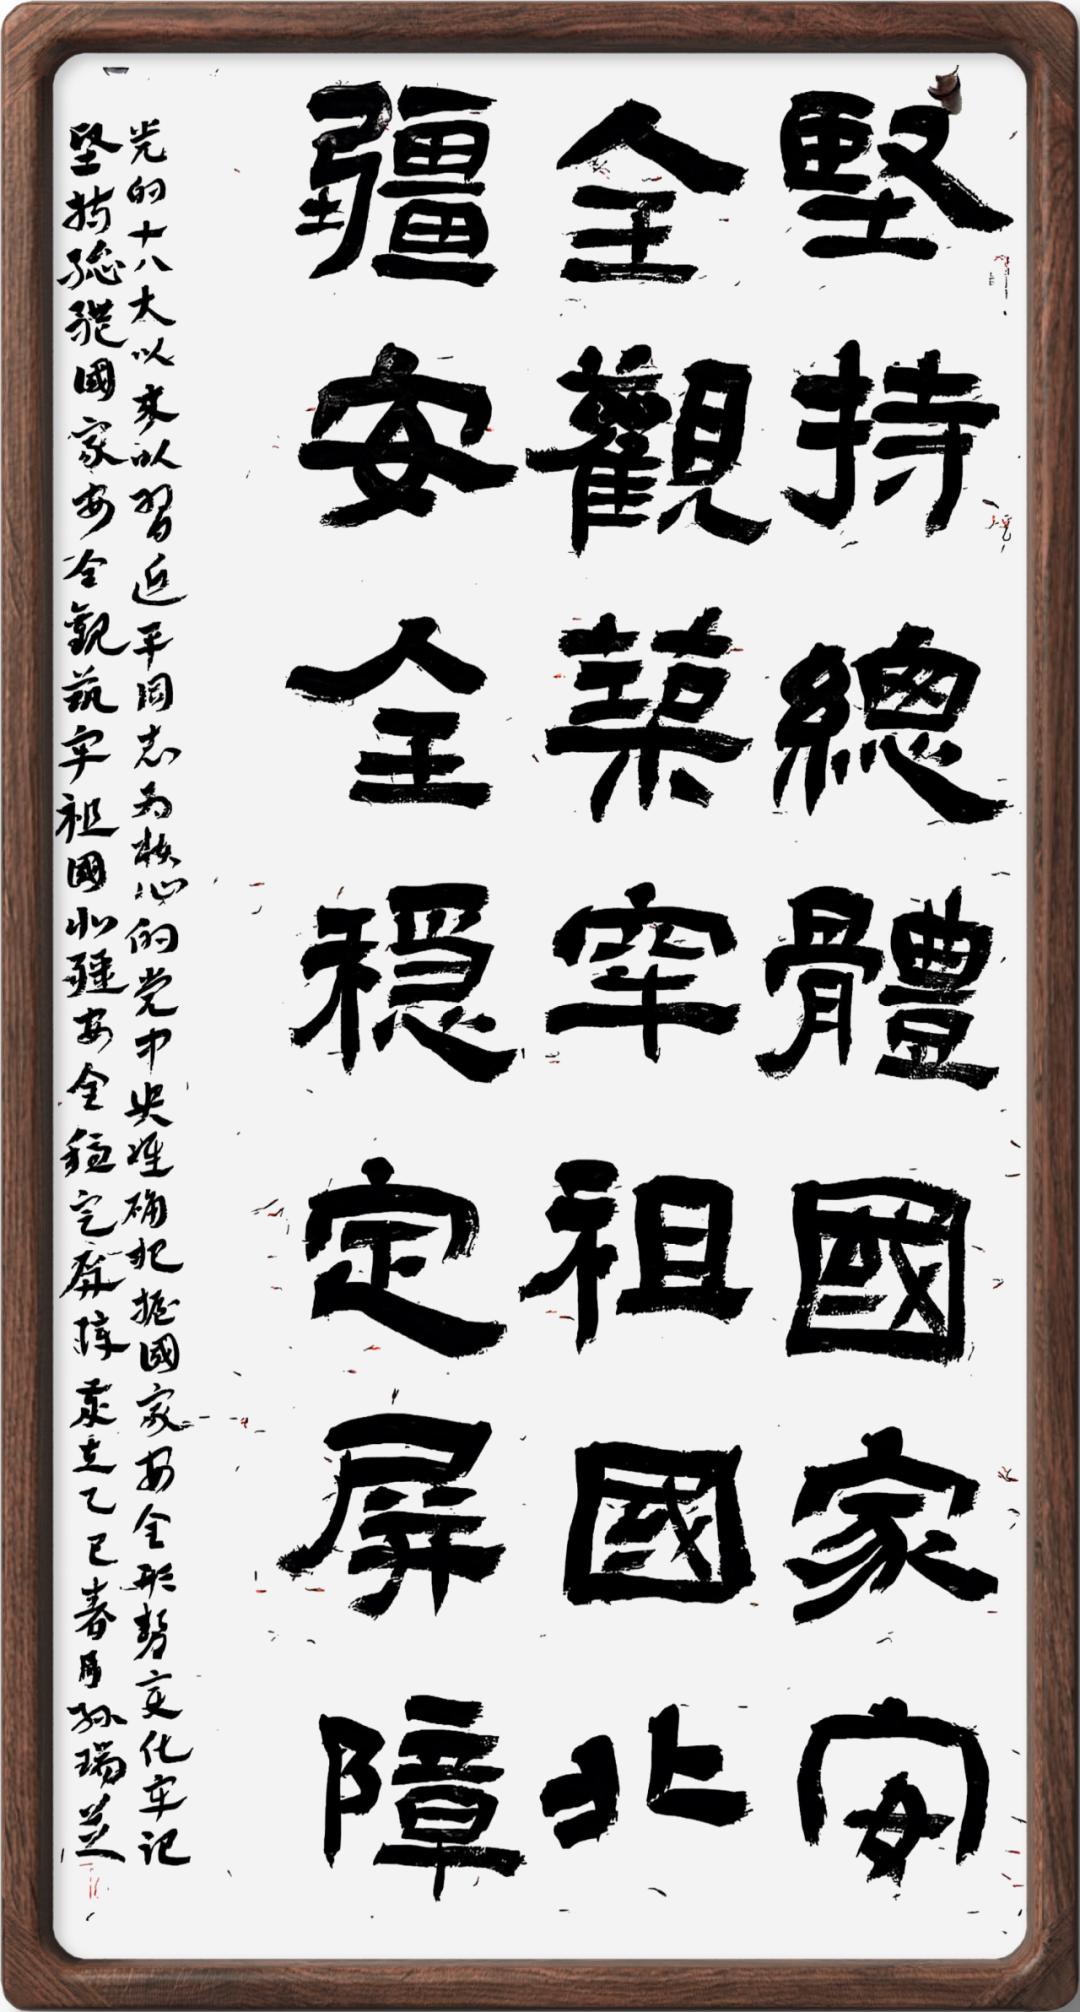 堅持總體國家安
全觀築牢祖國北
疆安全稳定屏障
党的十八大以来以習近平同志为核心的党中央准确把握國家安全形势变化牢记
坚持总體國家安全觀筑牢祖國北疆安全稳定屏障歲在乙巳春月孙瑞芝